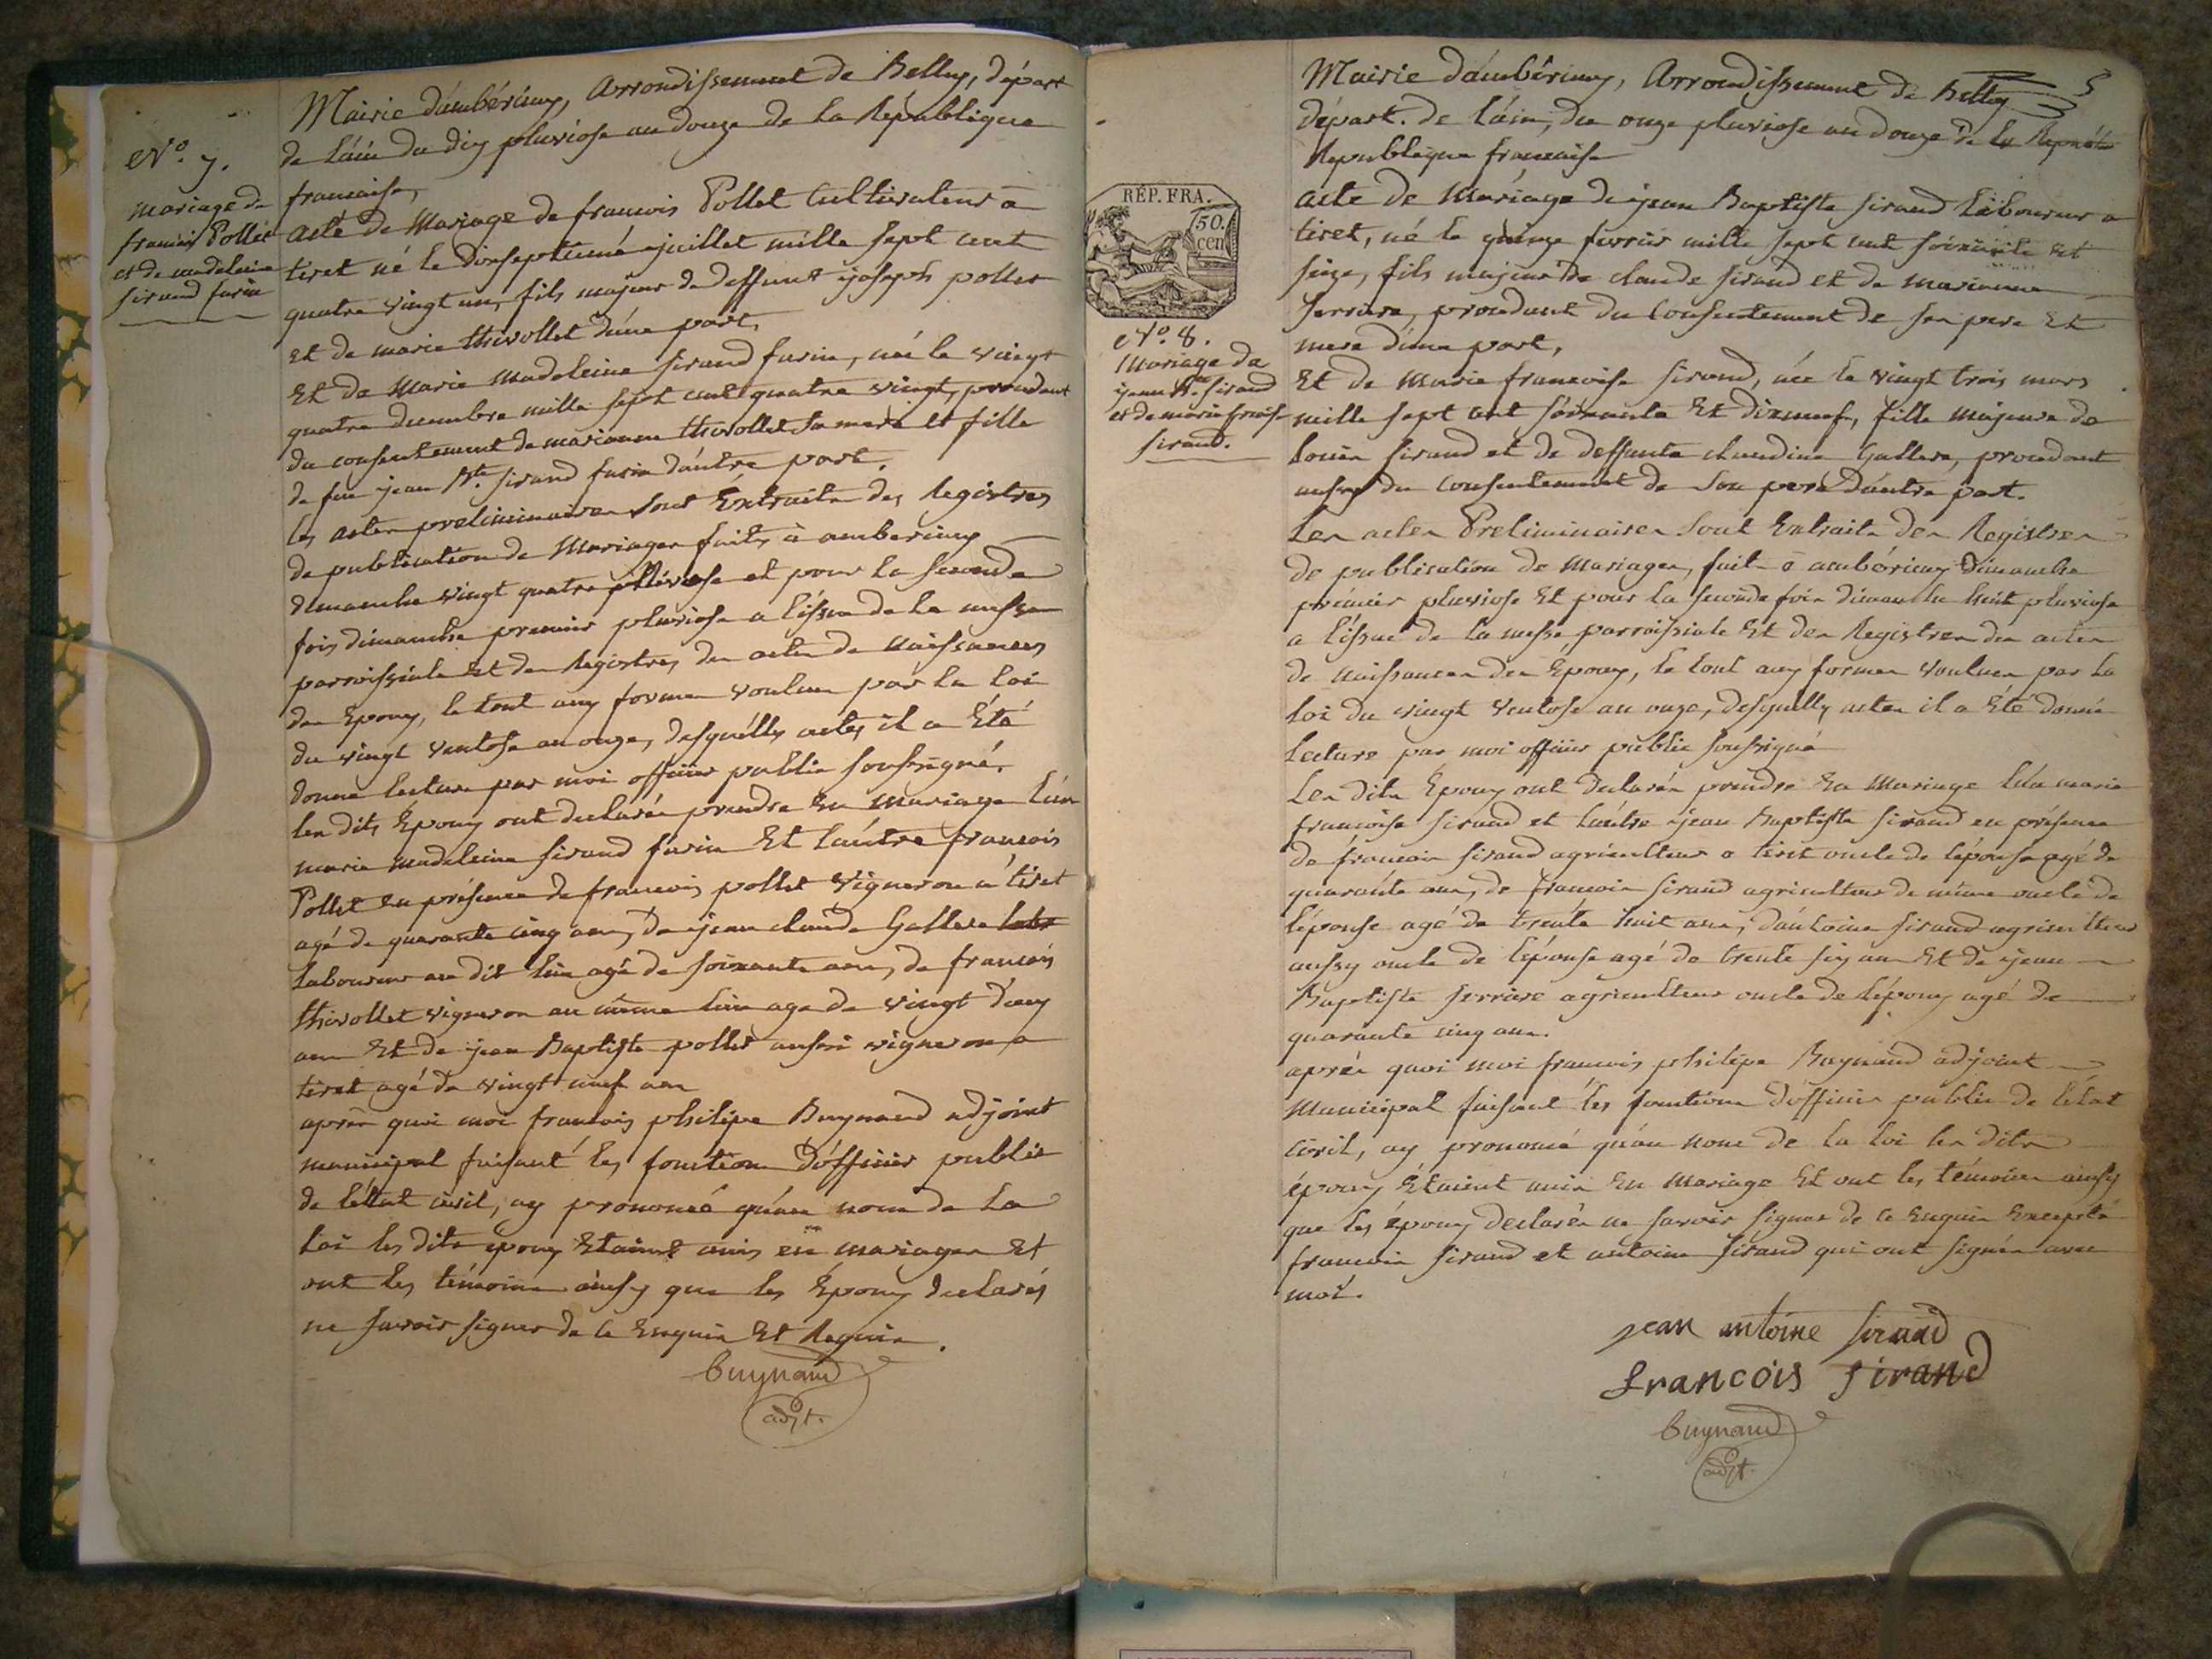 Mairie d'ambérieux, Arrondissement de Belley, départ
de l'ain du dix pluviose an douze de la République
francaise,
N.o 7.
mariage de
francois Pollet
et de madelaine
sirand furin
acte de Mariage de francois Pollet Cultivateur a
tiret né le dixseptieme juillet mille sept cent
quatre vingt un, fils majeur de deffunt joseph pollet
et de marie thivollet d'une part,
Et de Marie Madeleine sirand furin, née le vingt
quatre decembre mille sept cent quatre vingt, procedant
du consentement de marianne thivollet sa mere et fille
de feu jean Bte. sirand furin d'autre part.
les actes preliminaires sont Extraits des Registres
de publication de Mariages faits à amberieux
dimanche vingt quatre et pour la seconde
fois dimanche premier pluviose a l'issue de la messe
parroissiale Et des Registres des actes de Naissances
des Epoux, le tout aux formes voulues par la loi
du vingt ventose an onze, desquells actes il a Eté
donné lecture par moi officier public soussigné,
les dits Époux ont declarés prendre En Mariage l'un
marie madeleine sirand furin Et l'autre francois
Pollet En présence de francois pollet Vigneron a tiret
agé de quarante cinq ans, de jean claude Gallere
laboureur au dit lieu agé de soixante ans, de francois
thivollet vigneron au même lieu age de vingt deux
ans Et de jean Baptiste pollet aussi vigneron a
tiret agé de vingt neuf ans
après quoi moi francois philipe Buynand adjoint
municipal faisant les fonctions d'officier public
de l'état civil, ay prononcé qu'au nom de la
Loi les dits époux Etaient unis en mariages Et
ont les témoins ainsy que les Époux declarés
ne savoir signer de ce Enquis Et Requis.
buynand
adjt.
Mairie d'ambérieux, Arrondissement de Belley
départ. de l'ain, du onze pluviose an douze de la
Republique francaise
RÉP. FRA.
50.
cen
N.o 8.
Mariage de
jean Bte. sirand
et de marie francoise
sirand.
acte de Mariage de jean Baptiste sirand laboureur a
tiret, né le quinze fevrier mille sept cent soixante et
seize, fils majeur de claude sirand et de marianne
ferriere, procedant du Consentement de son pere Et
mere d'une part,
Et de Marie francoise sirand, née le vingt trois mars
mille sept cent soixante Et dixneuf, fille majeure de
louis sirand et de deffunte claudine Gallere, procedant
aussy du consentement de son pere d'autre part.
Les actes Preliminaires sont Extraits des Registres
de publication de Mariages, faits à ambérieux dimanche
premier pluviose Et pour la seconde fois dimanche huit pluviose
a l'issue de la messe parroissiale Et des Registres des actes
de Naissances des Époux, le tout aux formes voulues par la
loi du vingt ventose an onze, desquells actes il a Eté donné
lecture par moi officier public soussigné
Les dits Époux ont declarés prendre En Mariage l'un marie
francoise sirand et l'autre jean Baptiste sirand en présence
de francois sirand agriculteur a tiret oncle de l'épouse agé de
quarante ans, de francois sirand agriculteur de même oncle de
l'épouse agé de trente huit ans, d'antoine sirand agriculteur
aussy oncle de l'épouse agé de trente six ans Et de jean
Baptiste ferriere agriculteur oncle de l'époux agé de
quarante cinq ans.
après quoi moi francois philipe Buynand adjoint
Municipal faisant les fonctions d'officier public de l'état
Civil, ay prononcé qu'au nom de la loi les dits
époux Étaient unis En Mariage Et ont les témoins ainsy
que les époux declarés ne savoir signer de ce Enquis Excepté
francois sirand et antoine sirand qui ont signés avec
moi.
jean antoine sirand
francois sirand
buynand
adjt.